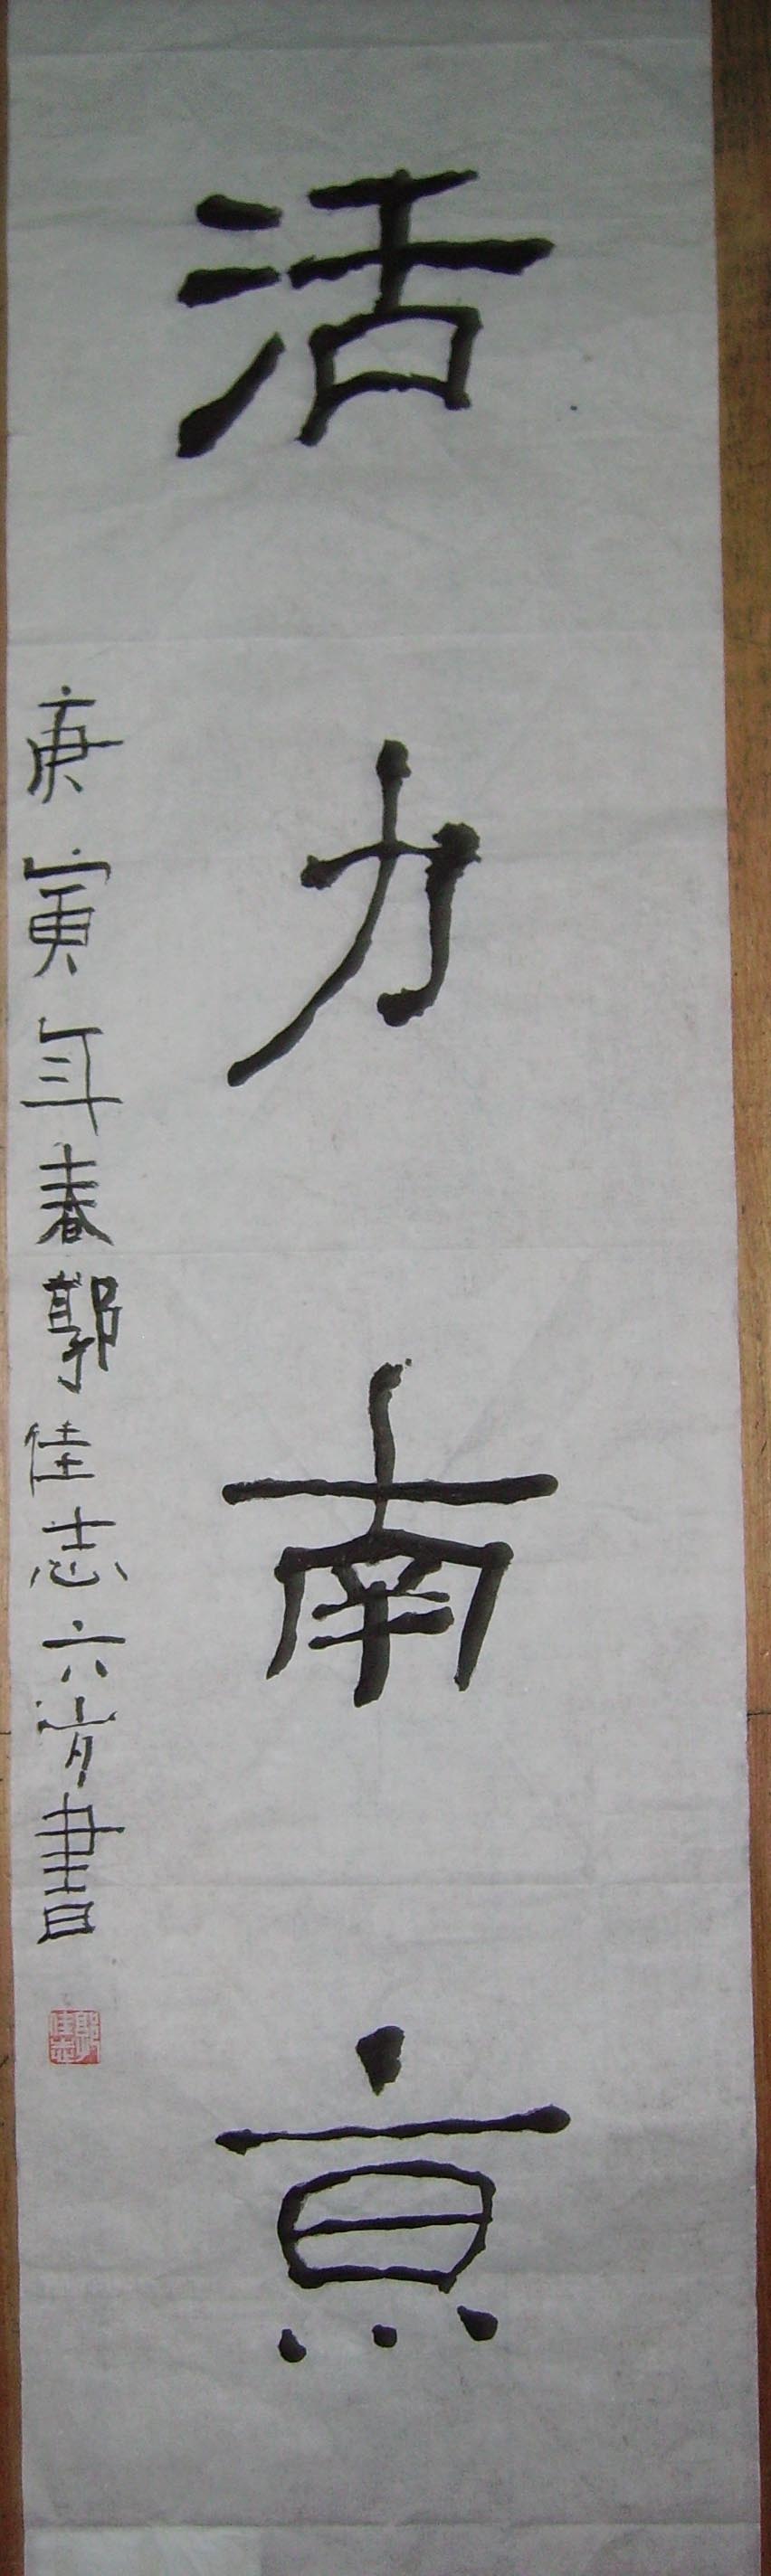 活力南京
庚寅年春郭佳志六岁書
郭佳志